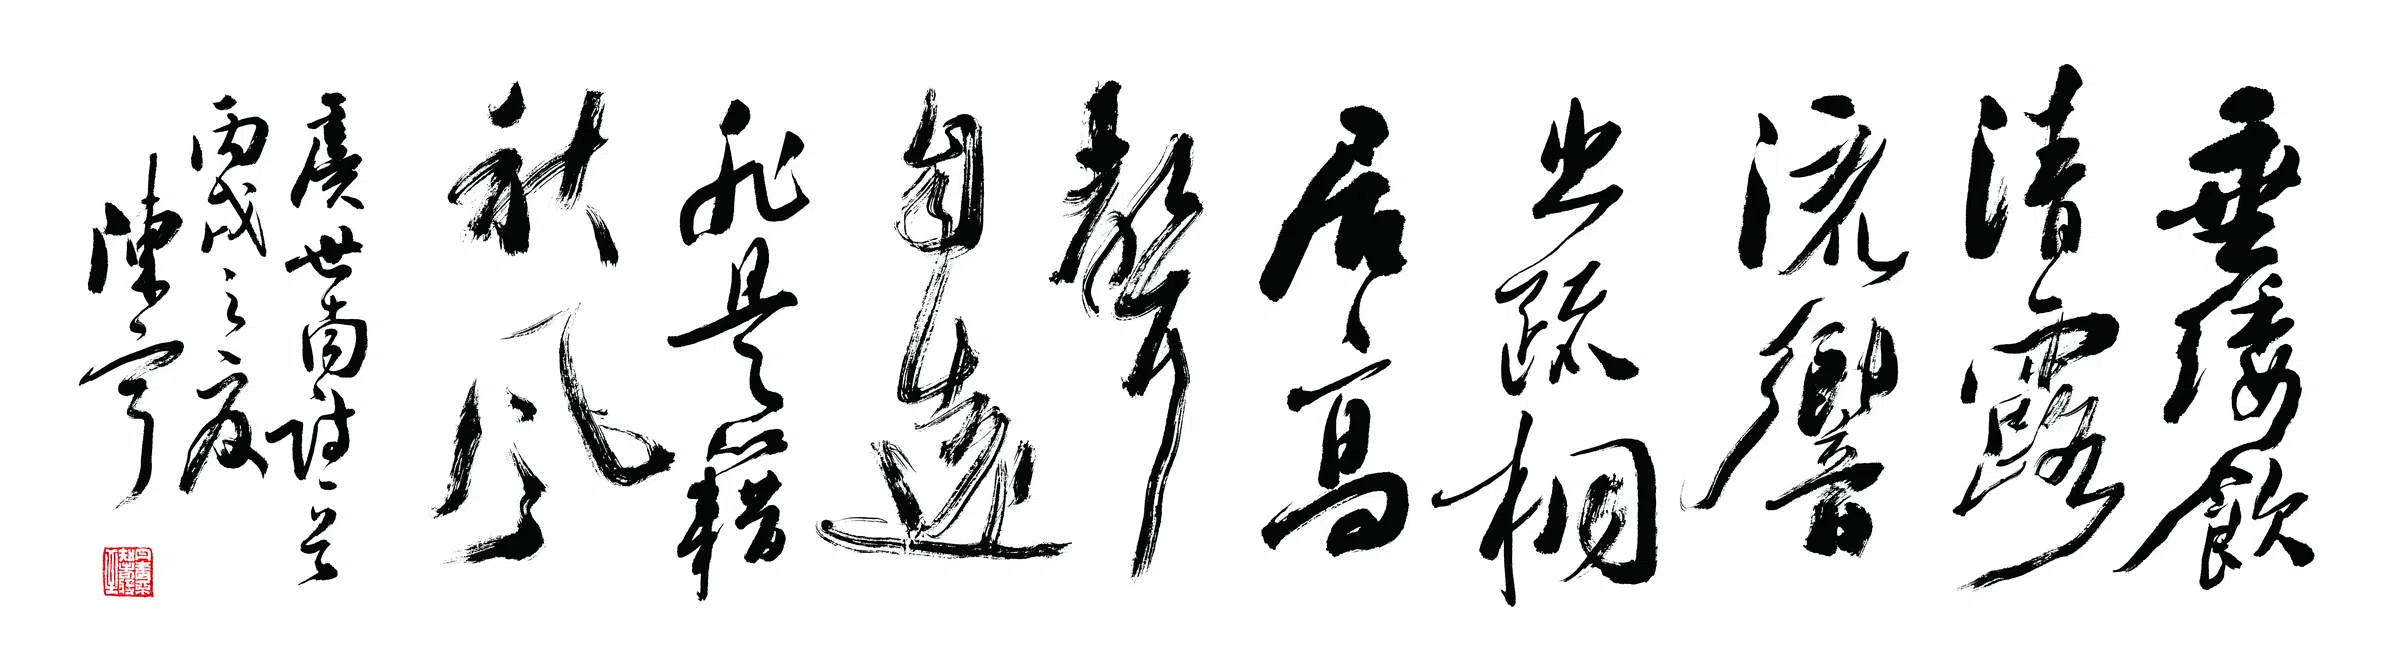 垂緌飲
清露
流響
出疏桐
居高
聲
自遠
非是籍
秋風
虞世南詩一首
丙戌之夏
陳